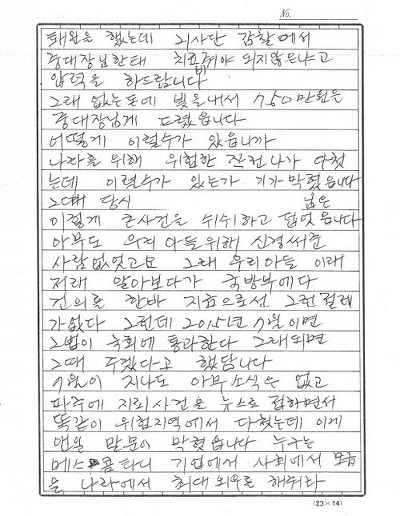 No.
퇴원을 했는데 기사단 감찰에서
중대장님한태 치료비 줘야 되지않은냐고
압력을 하드랍니다
그래 없는돈에 빛을내서 750만원은
중대장님게 드렸습니다
어떻게 이럴수가 있읍니까
나라를 위해 위험한 작전나가 다첬
는데 이럴수가 있는가 기가 막혔읍니다
그때 당시 님은
이렇게 큰사건을 쉬쉬하고 덥엇읍니다
아무도 우리 아들 위해 신경써준
사람없엇고요 그래 우리아들 이래
저래 알아보다가 국방부에다
건의를 한바 지금으로선 그런 걸레
가없다 그런데 2015년 7월이면
그법이 국회에 통과한다 그래되면
그때 주겠다고 했답니다
7월이 지나도 아무소식은 없고
파주에 지뢰사건을 뉴스로 접하면서
똑같이 위험지역에서 다첬는데 이게
먼일 말문이 막혔읍니다 누구는
메스콤타니 기업에서 사회에서 모금
을 나라에서 최대 외우를 해줘라
(23×14)